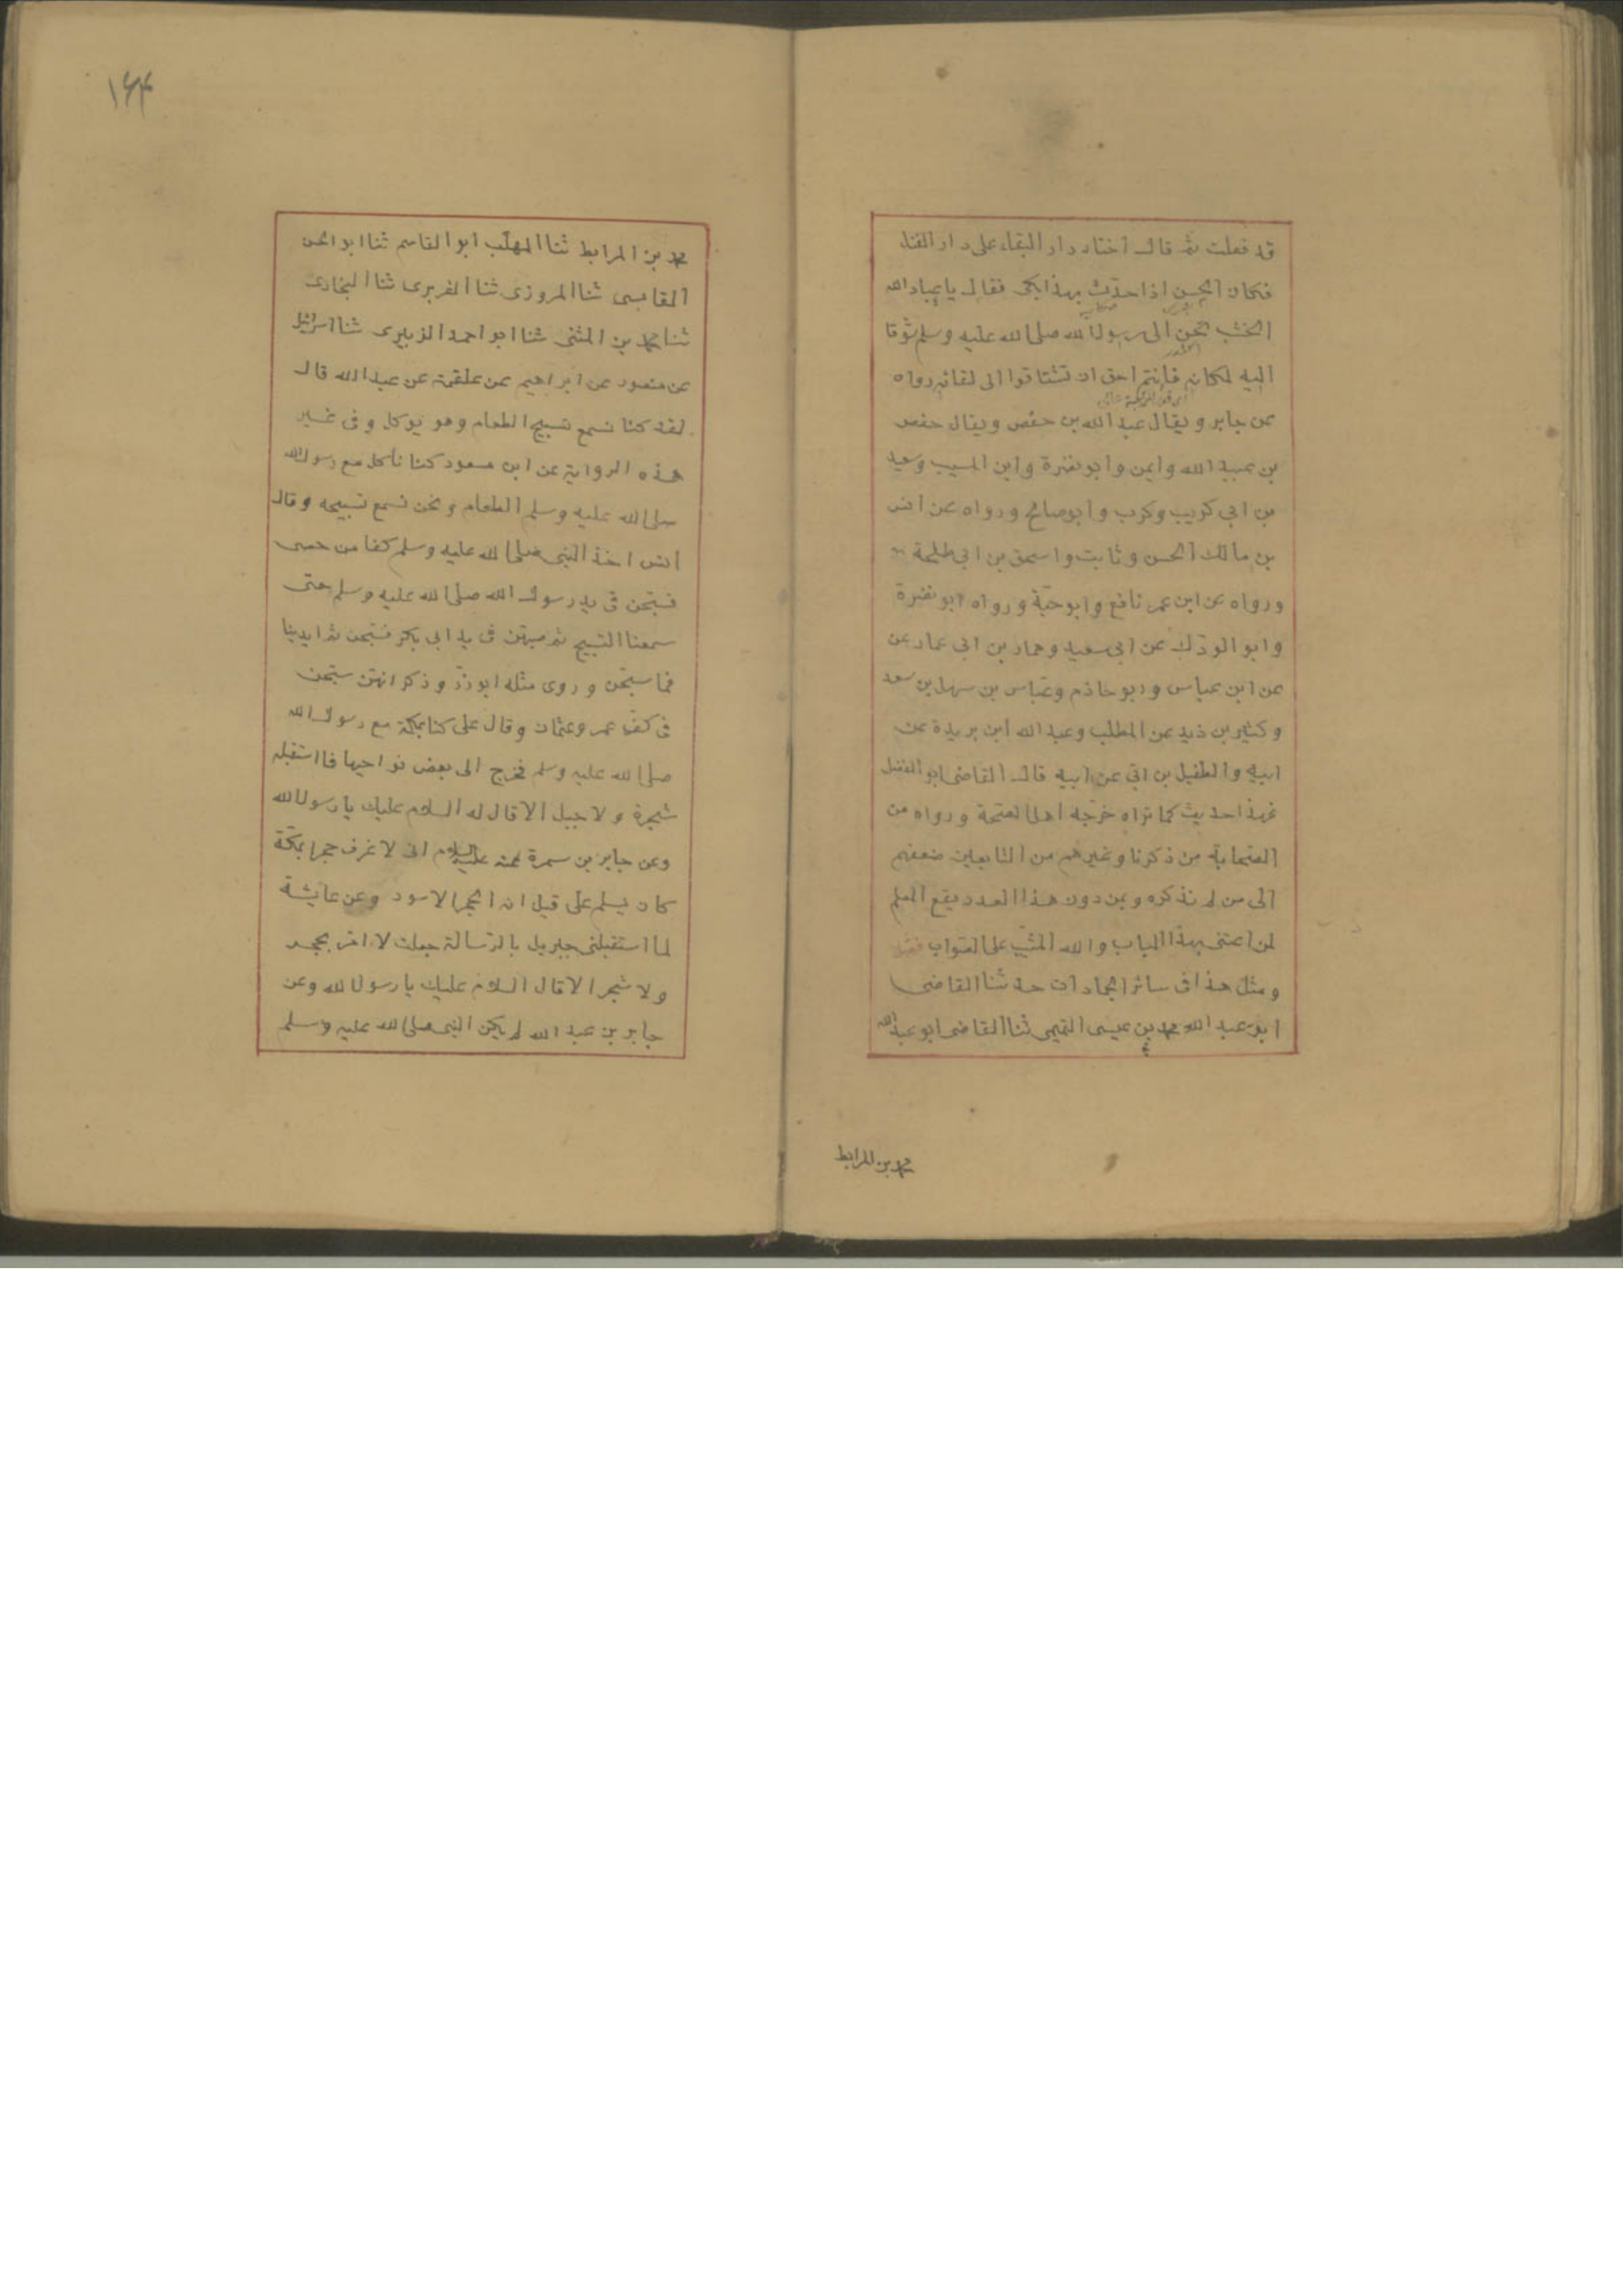 قد فعلت ثم قال اختار دار البقاء على دار الفناء
فكان الحسن اذا حدّث بهذا بكى فقال يا عباد الله
الخشب تحن الى رسول الله صلى الله عليه وسلم شوقا
اليه لمكانه فانتم احق ان تشتاقوا الى لقائه رواه
عن جابر ويقال عبد الله بن حفص ويقال حفص
بن عبيد الله وايمن وابو نضرة وابن المسيب وسعيد
بن ابي كريب وكريب وابو صالح ورواه عن انس
بن مالك الحسن وثابت واسحق بن ابي طلحة
ورواه عن ابن عمر نافع وابو حيّة ورواه ابو نضرة
وابو الودّاك عن ابي سعيد وعمار بن ابي عمار عن
عن ابن عباس وابو حازم وعبّاس بن سهل بن سعد
وكثير بن زيد عن المطلب وعبد الله ابن بريدة عن
ابيه والطفيل بن ابي عن ابيه قال القاضي ابو الفضل
فهذا حديث كما تراه خرّجه اهل الصّحة ورواه من
الصّحابة من ذكرنا وغيرهم من التابعين ضعفهم
الى من لم نذكره وبمن دون هذا العدد يقع العلم
لمن اعتنى بهذا الباب والله المثبّت على الصّواب فصل
ومثل هذا فى سائر الجمادات حدثنا القاضى
ابو عبد الله محمد بن عيسى التميمى ثنا القاضى ابو عبد الله
محمد بن المرابط
١٦٤
محمد بن المرابط ثنا المهلّب ابو القاسم ثنا ابو الحسن
القابسى ثنا المروزى ثنا الفربرى ثنا البخارى
ثنا محمد بن المثنى ثنا ابو احمد الزبيرى ثنا اسرائيل
عن منصور عن ابراهيم عن علقمة عن عبد الله قال
لقد كنا نسمع تسبيح الطعام وهو يوكل وفى غير
هذه الرواية عن ابن مسعود كنا ناكل مع رسول الله
صلى الله عليه وسلم الطعام ونحن نسمع تسبيحه وقال
انس اخذ النبى صلى الله عليه وسلم كفا من حصى
فسبّحن فى يد رسول الله صلى الله عليه وسلم حتى
سمعنا التسبيح ثم صبهن فى يد ابى بكر فسبّحن ثم ايدينا
فما سبّحن وروى مثله ابو ذرّ وذكر انهنّ سبّحن
فى كفّ عمر وعثمان وقال على كنا بمكة مع رسول الله
صلى الله عليه وسلم فخرج الى بعض نواحيها فما استقبله
شجرة ولا جبل الا قال له السلام عليك يا رسول الله
وعن جابر بن سمرة عنه عليه السلام انى لاعرف حجرا بمكّة
كان يسلم على قيل انه الحجر الاسود وعن عايشة
لما استقبلنى جبريل بالرّسالة جعلت لا امرّ بحجر
ولا شجر الا قال السلام عليك يا رسول الله وعن
جابر بن عبد الله لم يكن النبى صلى الله عليه وسلم